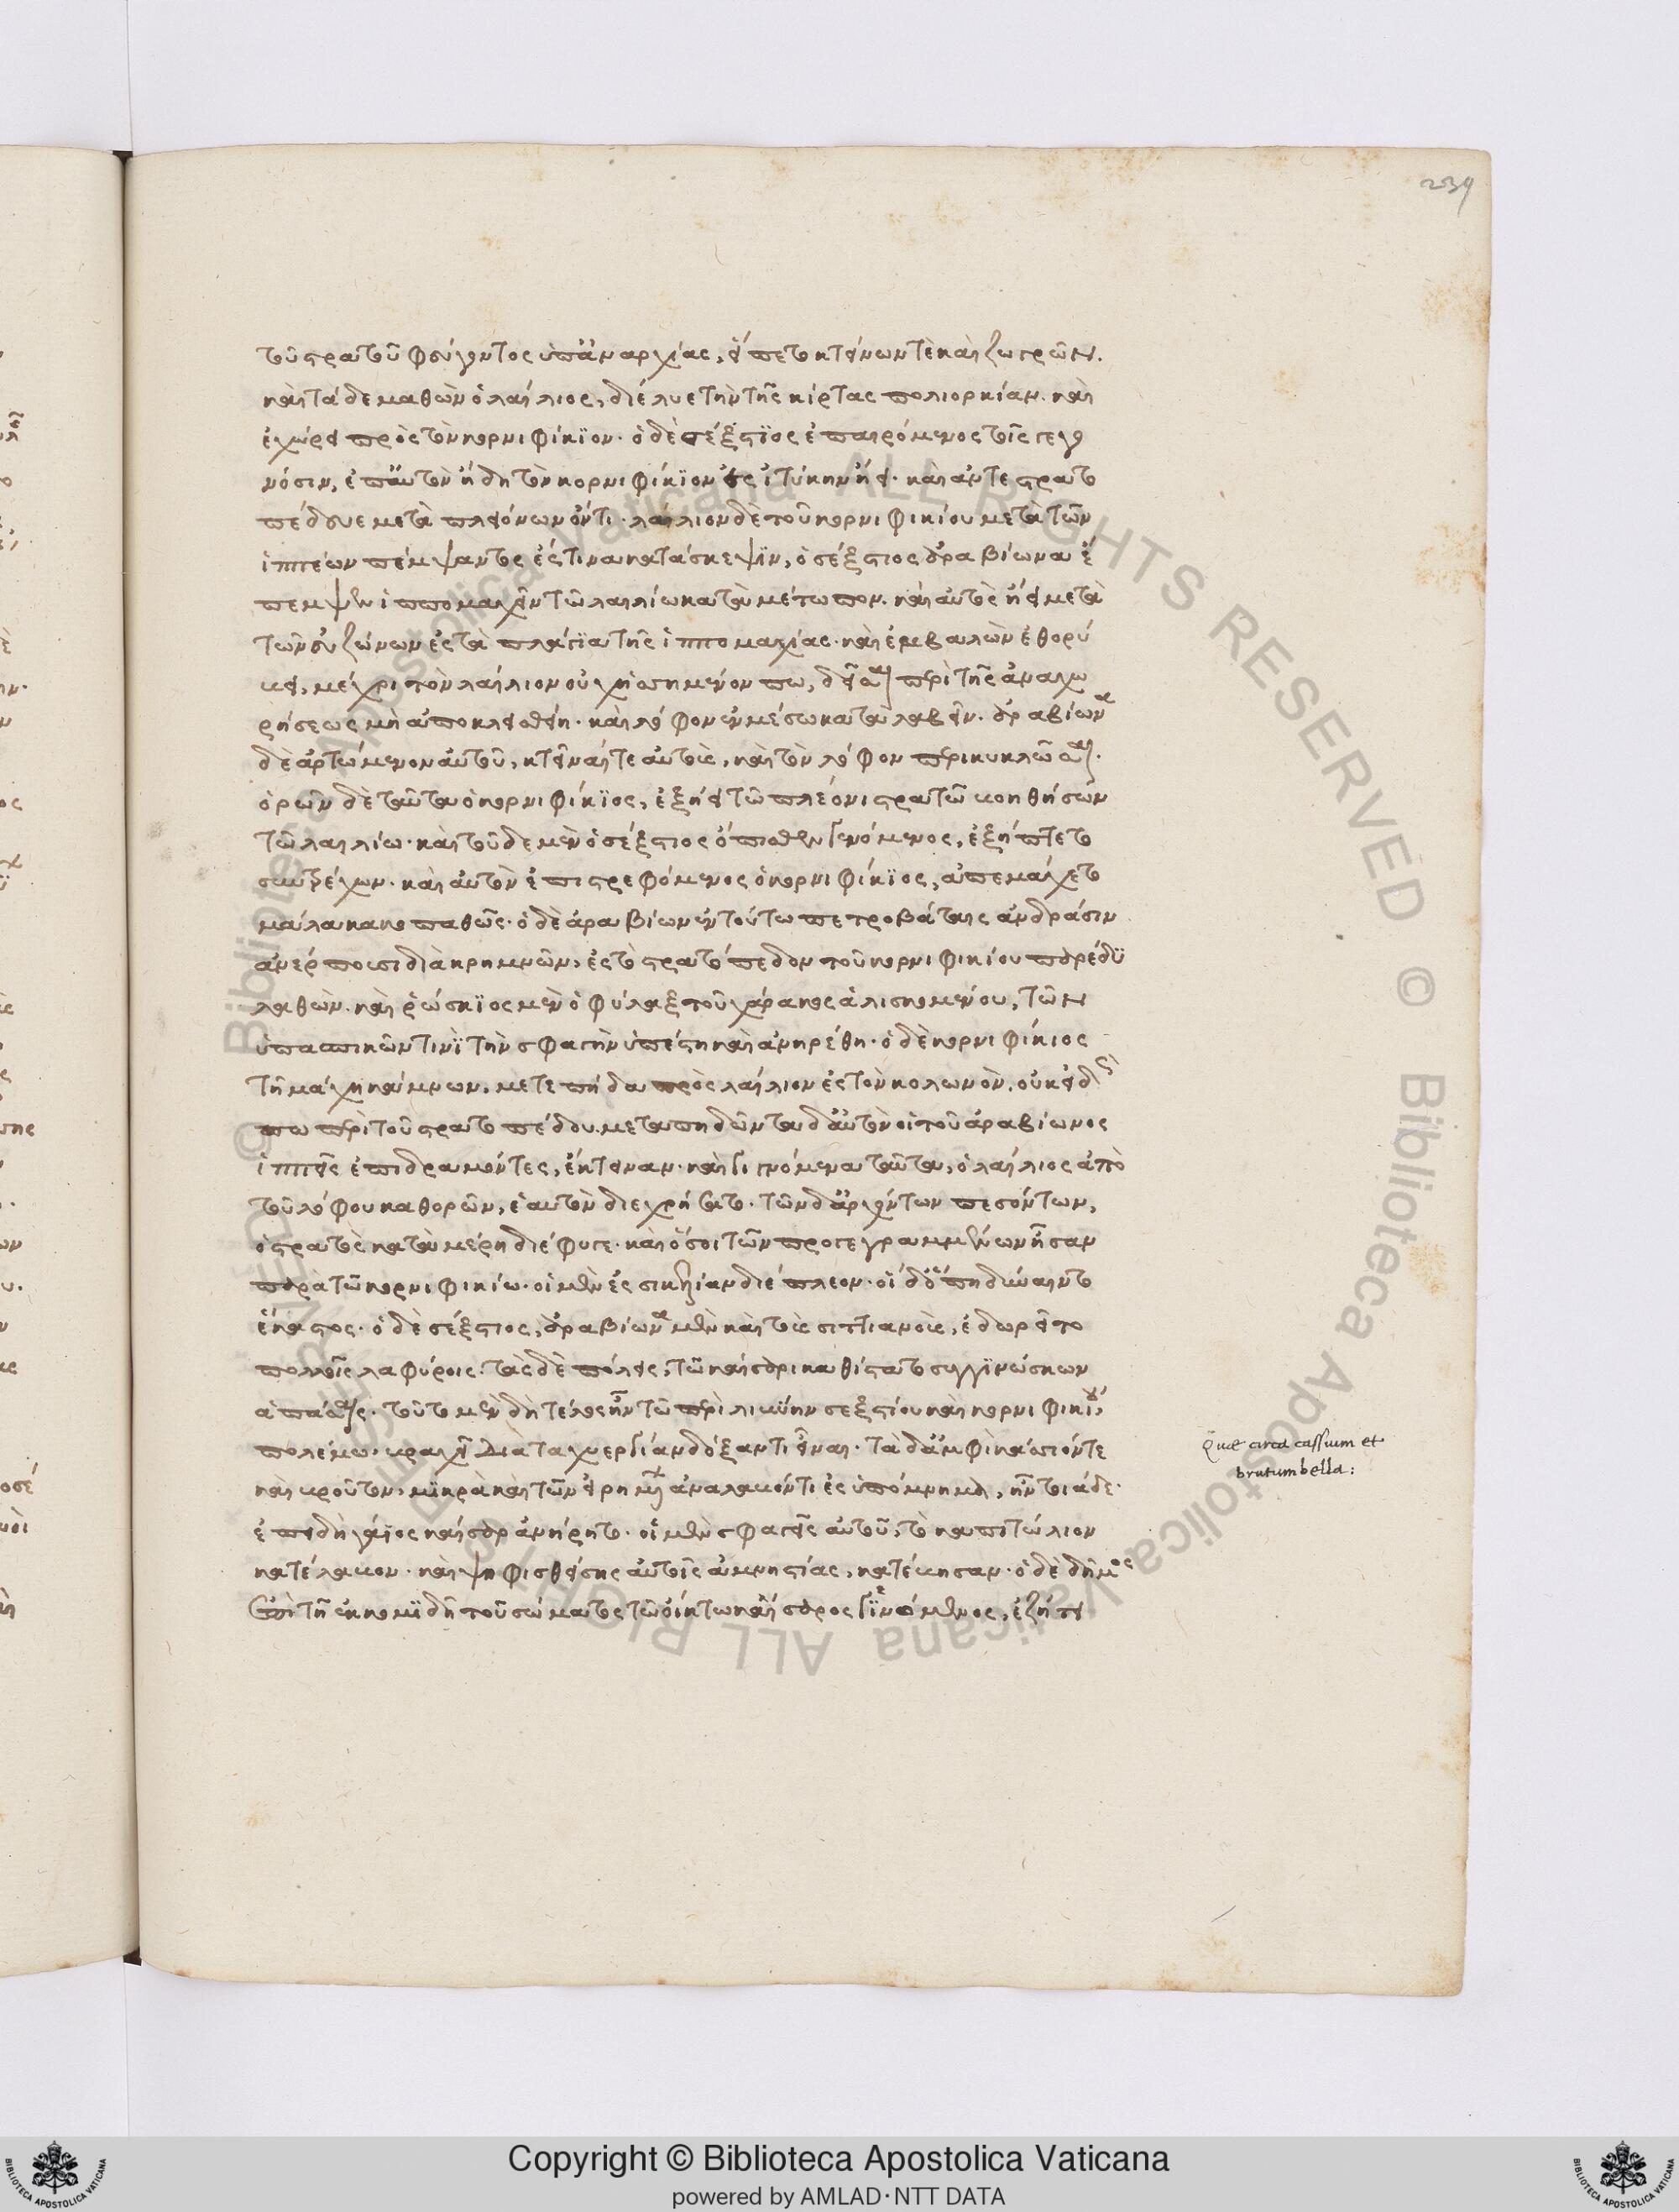 τοῦ στρατοῦ φυγόντος ὑπἀναρχίας, εἵπετο κτείνων τὲ καὶ ζωγρῶν.
καὶ τάδε μαθὼν ὁ λαίλιος, διέλυε τὴν τῆς κίρτας πολιορκίαν. καὶ
ἐχώρει πρὸς τὸν κορνιφίκϊον· ὁ δὲ σέξστϊος ἐπαιρόμενος τοῖς γεγο
νόσιν, ἐπαὐτὸν ἤδη τὸν κορνιφίκϊον ἐς ἰτύκην ἤει· καὶ ἀντεστρατο
πέδευε μετὰ πλειόνων ὄντι· λαίλιον δὲ τοῦ κορνιφικίου μετὰ τῶν
ἱππέων πέμψαντος ἐς τινα κατάσκεψϊν, ὁ σέξστιος ἀραβίωνα ἔ
πεμψεν ἱππομαχεῖν τῶ λαιλίω κατὰ μέτωπον. καὶ αὐτὸς ἤει μετὰ
τῶν εὐζώνων ἐς τὰ πλάγϊα τῆς ἱππομαχίας· καὶ ἐμβαλὼν ἐθορύ
βει, μέχρι τὸν λαίλιον οὐχ ἡσσημένον πω, δεῖσαι περὶ τῆς ἀναχω
ρήσεως μὴ ἀποκλεισθείη· καὶ λόφον ἐν μέσω καταλαβεῖν. ἀραβίωνα
δὲ ἀρτώμενον αὐτοῦ, κτεῖναί τε αὐτοὺς, καὶ τὸν λόφον περικυκλῶσαι.
ὁρῶν δὲ ταῦτα ὁ κορνιφίκϊος, ἐξήει τῶ πλέονι στρατῶ βοηθήσων
τῶ λαιλίω· καὶ τοῦδε μὲν ὁ σέξστιος ὄπισθεν γενόμενος, ἐξήπτετο
συντρέχων· καὶ αὐτὸν ἐπιστρεφόμενος ὁ κορνιφίκϊος, ἀπεμάχετο
μάλα κακοπαθῶς· ὁ δὲ ἀραβίων ἐν τούτω πετροβάταις ἀνδράσιν
ἀνέρπουσι διὰ κρημνῶν, ἐς τὸ στρατόπεδον τοῦ κορνιφικίου παρέδυ
λαθών. καὶ ῥώσκϊος μὲν ὁ φύλαξ τοῦ χάρακος ἁλισκομένου, τῶν
ὑπασπιστῶν τινὶ τὴν σφαγὴν ὑπέστη καὶ ἀνηρέθη· ὁ δὲ κορνιφίκιος
τῆ μάχη κάμνων, μετεπήδα πρὸς λαίλιον ἐς τὸν κολωνὸν, οὐκ εἰδώς
πω περὶ τοῦ στρατοπέδου. μεταπηδῶντα δαὐτὸν οἱ τοῦ ἀραβίωνος
ἱππεῖς ἐπιδραμόντες, ἔκτειναν· καὶ γιγνόμενα ταῦτα, ὁ λαίλιος ἀπὸ
τοῦ λόφου καθορῶν, ἑαυτὸν διεχρήσατο. τῶν δἀρχόντων πεσόντων,
ὁ στρατὸς κατὰ μέρη διέφυγε· καὶ ὅσοι τῶν προγεγραμμένων ἦσαν
παρὰ τῶ κορνιφικίω· οἱ μὲν ἐς σικελίαν διέπλεον· οἱ δὅπη δύναιντο
ἕκαστος· ὁ δὲ σέξστιος, ἀραβίωνα μὲν καὶ τοὺς σιττιανοὺς, ἐδωρεῖτο
πολλοῖς λαφύροις· τὰς δὲ πόλεις, τῶ καίσαρι καθίστατο συγγϊνώσκων
ἁπάσαις· τοῦτο μὲν δὴ τέλος ἦν τῶ περὶ λιβύην σεξστίου καὶ κορνιφικίου
πολέμω· βραχεῖ διὰ ταχυεργίαν δόξαντι εἶναι· τὰ δἀμφὶ κάσσιόν τε
καὶ βροῦτον, μϊκρὰ καὶ τῶν εἰρημένων ἀναλαβόντι ἐς ὑπόμνημα, ἦν τοιάδε·
ἐπειδὴ γάϊος καῖσαρ ἀνήρητο· οἱ μὲν σφαγεῖς αὐτοῦ, τὸ καπιτώλιον
κατέλαβον· καὶ ψηφισθείσης αὐτοῖς ἀμνηστίας, κατέβησαν· ὁ δὲ δῆμος
ἐπὶ τῆ ἐκκομϊδῆ τοῦ σώματος τῶ οἴκτω καίσαρος γϊνόμενος, ἐζήτει
Quæ circa cassium et
brutum bella:
239
Copyright © Biblioteca Apostolica Vaticana
powered by AMLAD·NTT DATA